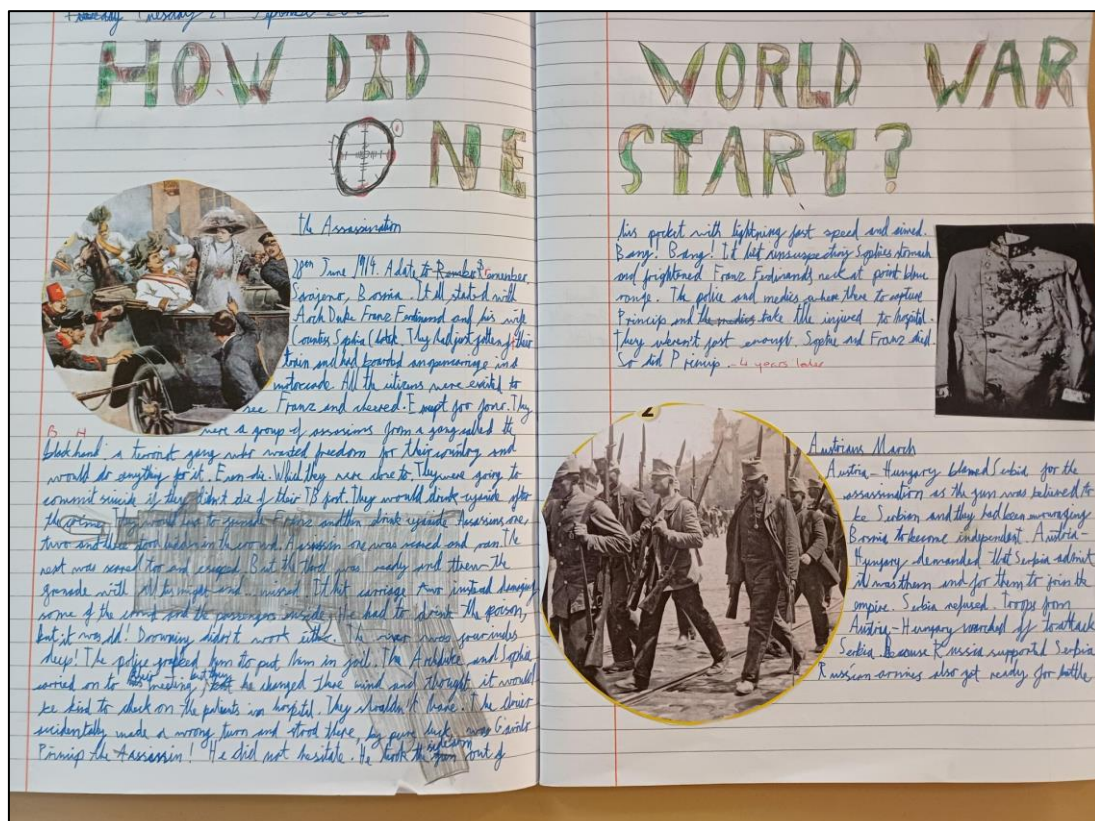 Tuesday September
HOW DID
ONE
the Assassination
June 1914. A date to Remember remember
Sarajevo, Bosnia. It all stated with
Arch Duke Franz Ferdinand and his wife
Countes Sophia Chotek. They had just gotten of their
train and had boarded an open carriage and
motorcade. All the citizens were exited to
see Franz and cheered. Exept for four. They
B H
were a group of assasins from a gang called the
black hand: a terorist gang who wanted freedom for their country and
would do anything for it. Even die. While they were close to. They were going to
commit suicide if they didn't die of their TB first. They would drink cyanide after
the crime. They would have to grenade Franz and then drink cyanide. Assassins one,
two and three stood in the crowd. Assassin one was scared and ran. The
next was scared to and escaped. But the third was ready and threw the
grenade with all his might and missed. It hit carriage two instead damaging
some of the crowd and the passengers inside. He had to drink the poison,
but it was old! Drowning didn't work either. The river was four inches
deep! The police grabbed him to put him in jail. The Archduke and Sophia
carried on to their meeting, but they he changed there mind and thought it would
be kind to check on the patients in hospital. They shouldn't have. The driver
accidentally made a wrong turn and stood there by pure luck was Gavrilo
Princip the Assassin! He did not hesitate. He took the gun out of
WORLD WAR
START?
his pocket with lightning fast speed and aimed.
Bang! Bang! It hit unsuspecting Sophies stomach
and frightened Franz Ferdinands neck at point blue
range. The police and medics where there to capture
Princip and the medics take the injured to hospital.
They weren't fast enough. Sophie and Franz died.
So did Princip. - 4 years later
2
Austrians March
Austria-Hungary blamed Serbia for the
assassination as the gun was believed to
be Serbian and they had been encouraging
Bosnia to become independent. Austria-
Hungary demanded that Serbia admit
it was them and for them to join the
empire. Serbia refused. Troops from
Austria-Hungary marched of to attack
Serbia. Because Russia supported Serbia
Russian armies also got ready for battle